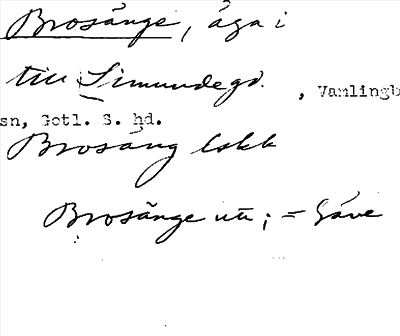 Brosänge, äga i
till Simundegd. , Vamlingb
sn, Gotl. S. hd.
Brosäng lskk
Brosänge utt ; =